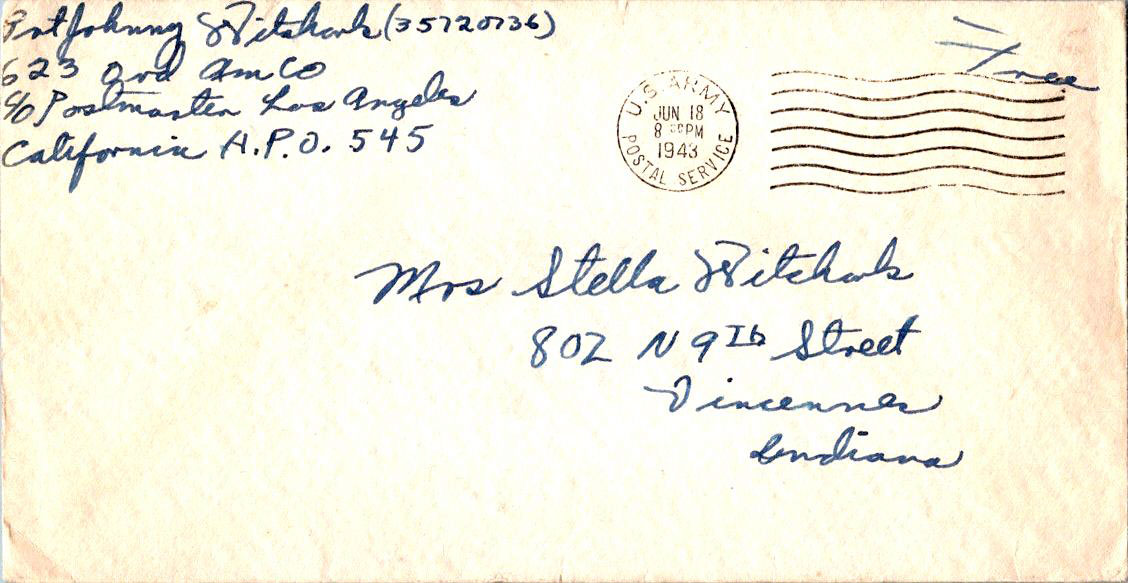 Pvt Johnny Witshork (35720736)
623 Ord Am Co
c/o Postmaster Los Angeles
California A.P.O. 545
Free
U.S. ARMY
JUN 18
8 PM
1943
POSTAL SERVICE
Mrs Stella Witshork
802 N 9Th Street
Vincennes
Indiana